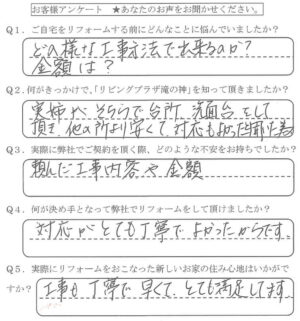 お客様アンケート ★あなたのお声をお聞かせください。
Q1．ご自宅をリフォームする前にどんなことに悩んでいましたか？
どの様な工事方法で出来るのか？
金額は？
Q2．何がきっかけで、「リビングプラザ滝の神」を知って頂きましたか？
実姉がそちらで台所、洗面台をして
頂き、他の所より安くて、対応もよかった
Q3．実際に弊社でご契約を頂く際、どのような不安をお持ちでしたか？
頼んだ工事内容や金額
Q4．何が決め手となって弊社でリフォームをして頂けましたか？
対応がとても丁寧でよかったからです。
Q5．実際にリフォームをおこなった新しいお家の住み心地はいかがで
すか？ 工事も丁寧で早くて、とても満足してます。